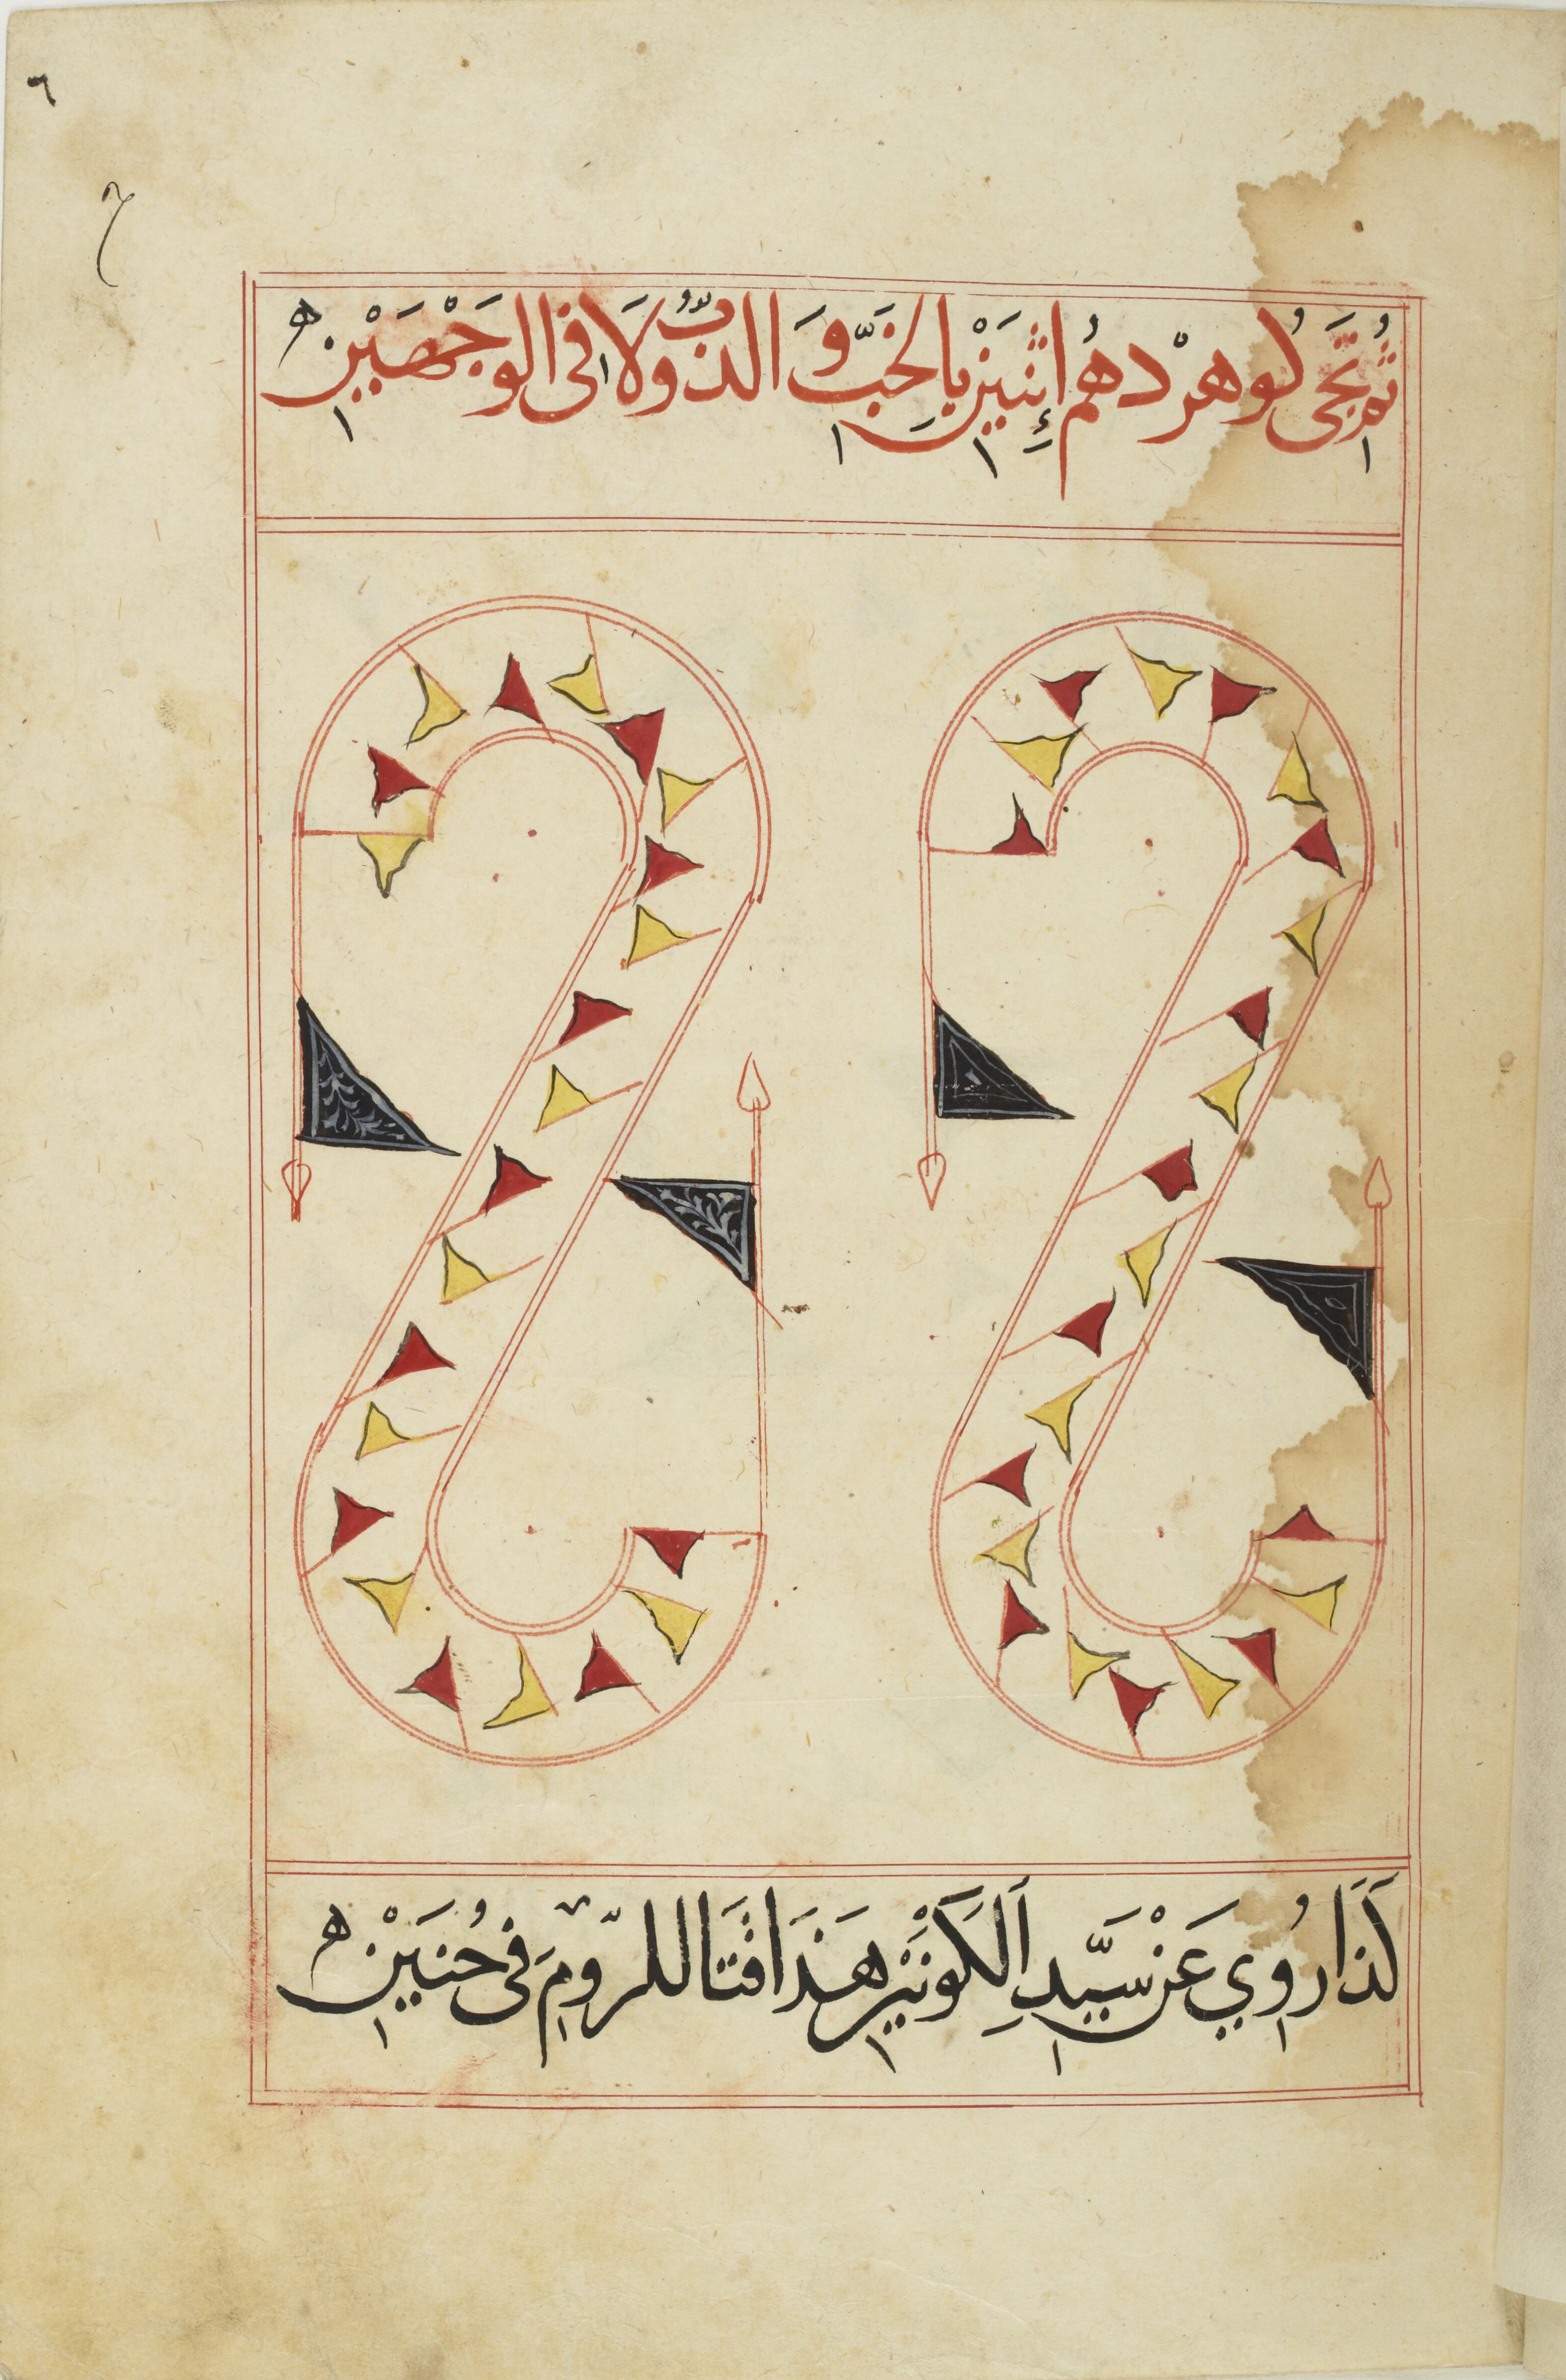 ٦
ثُمَّ تَجَى لُو هرْدهُم اِثنَيَنْ يالخَبّ وَ الذّبُّ ولَا فى الوجْهَيْنِ
كَذَا رُوِي عَنْ سَيَّدِ اَلكَوْنَيْنِ هَذَا قتَالَ للرّومَ فى حُنَيْنِ